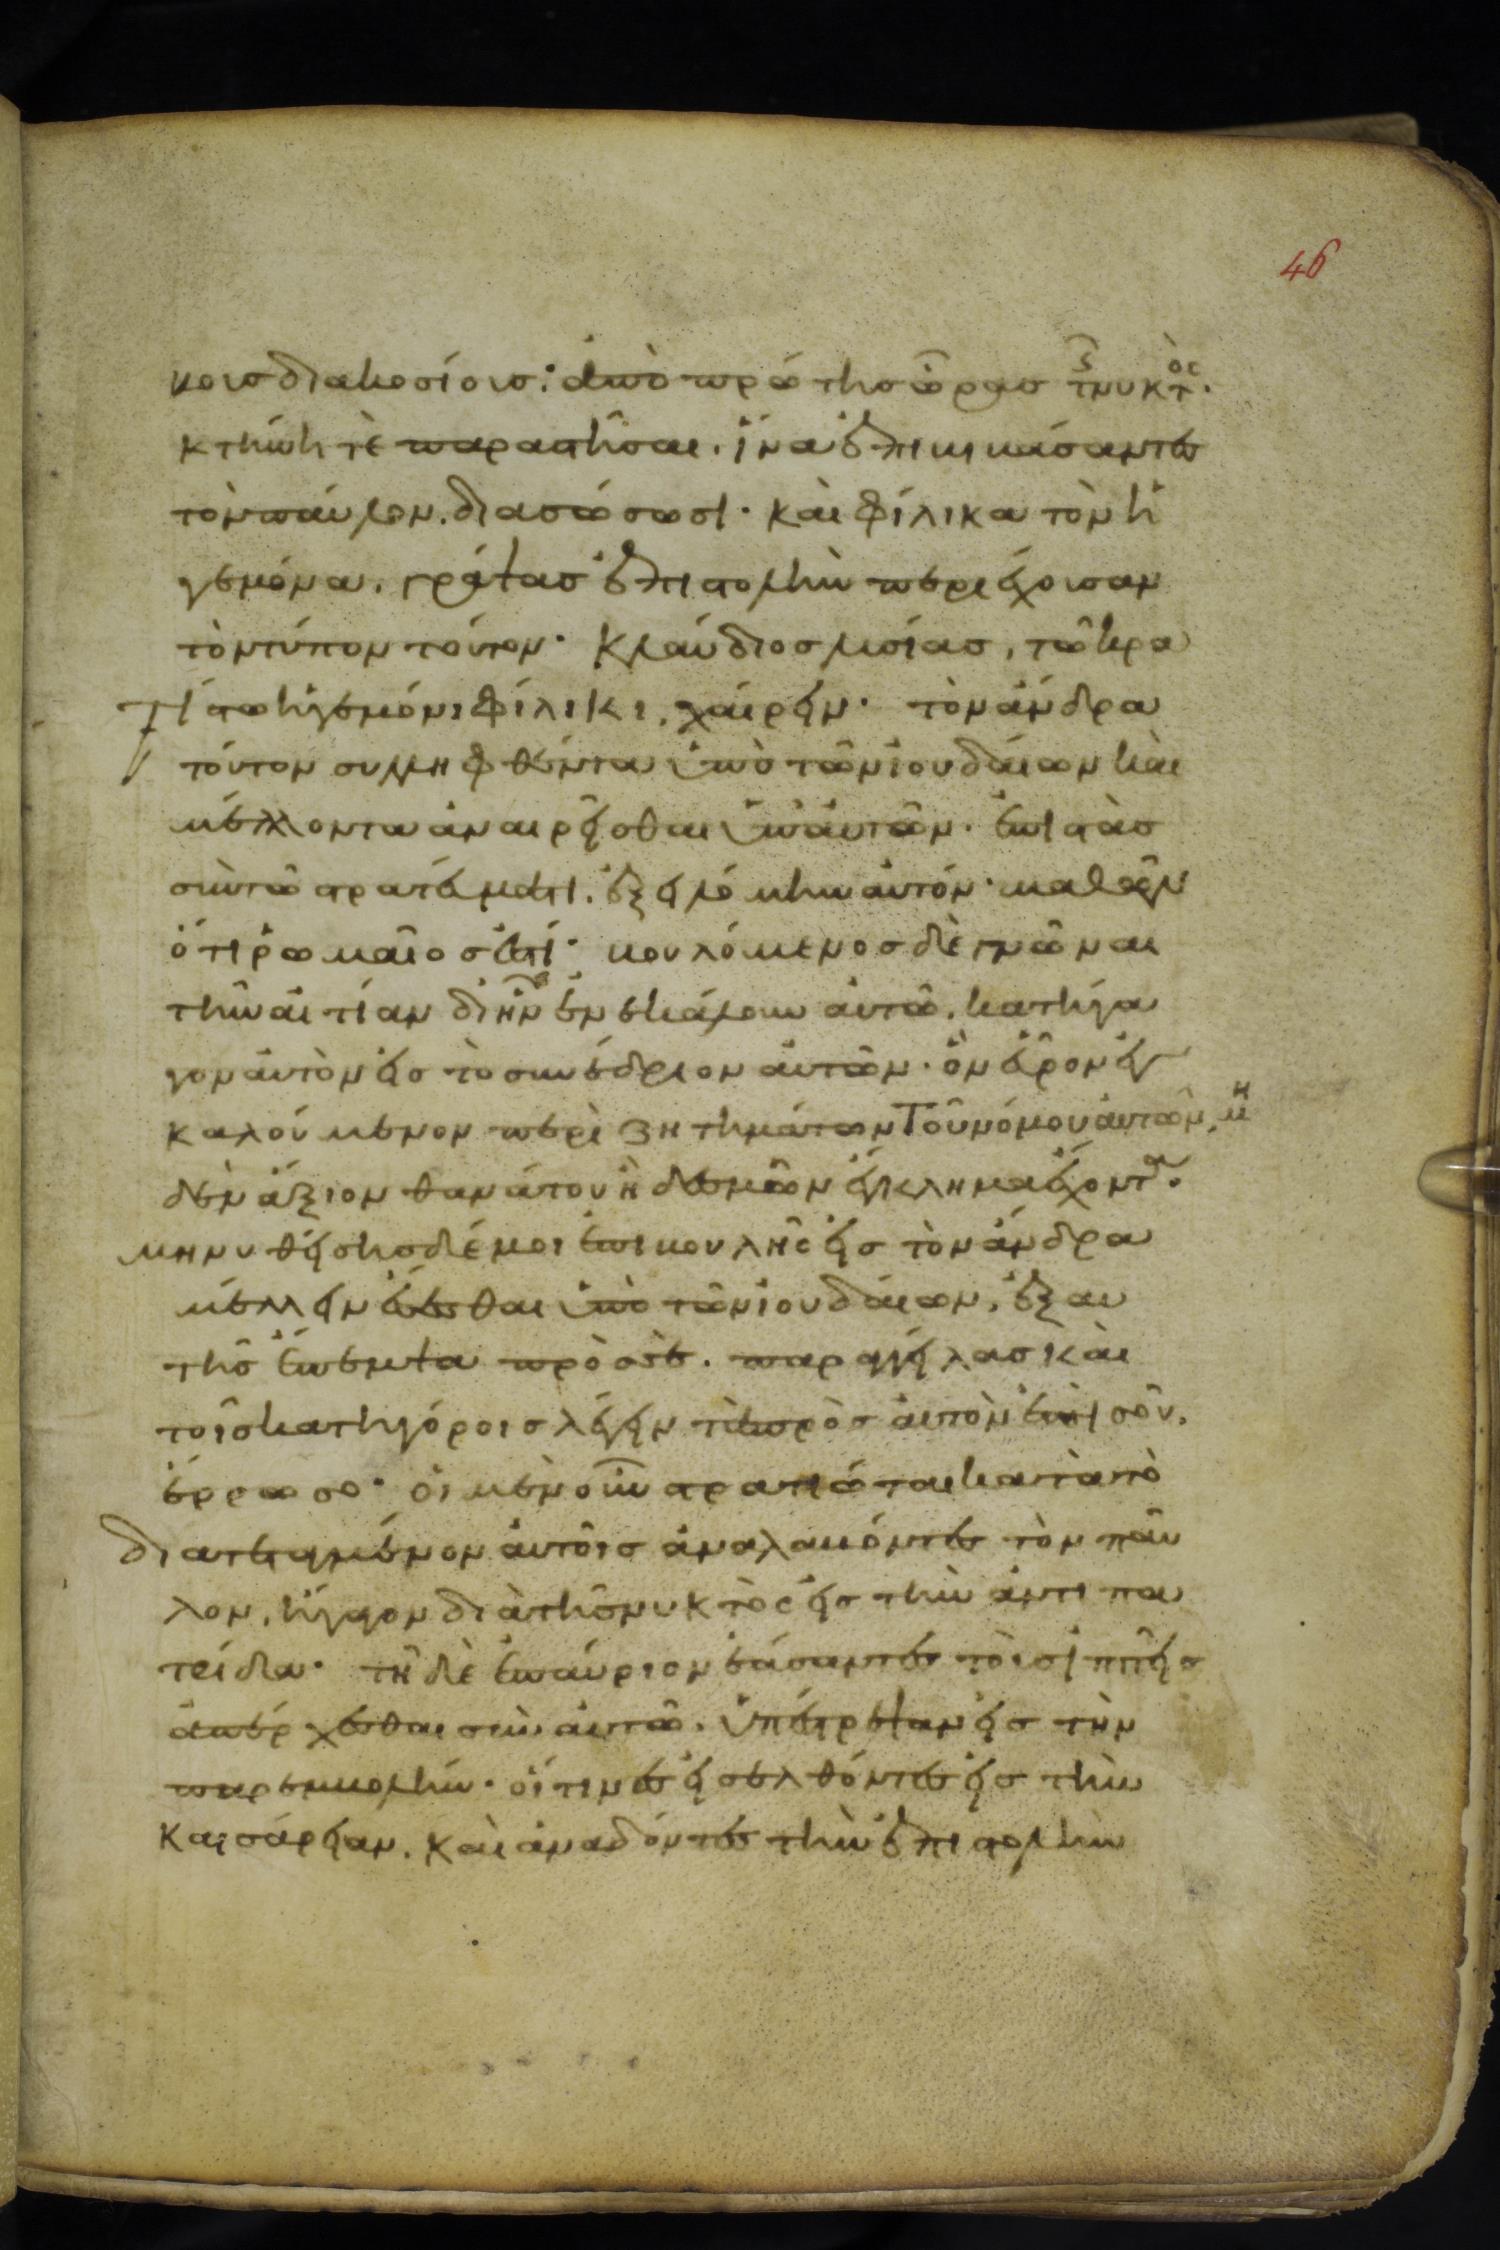 46
βοις διακοσίοις· ἀπὸ τρίτης ὥρας τῆς νυκτός.
κτήνη τὲ παραστῆσαι. ἵνα ἐπιβιβάσαντες
τὸν παύλον. διασώσωσι· καὶ φίλικα τὸν ἡ
γεμόνα. γράψας ἐπιστολὴν περιέχουσαν
τὸν τύπον τοῦτον· κλαύδιος λυσίας, τῶ κρα
τίστω ἡγεμόνι φίλικι, χαίρειν· τὸν ἄνδρα
τοῦτον συλληφθέντα ὑπὸ τῶν ἰουδαίων καὶ
μέλλοντα ἀναιρεῖσθαι ὑπ' αὐτῶν. ἐπιστὰς
σὺν τῶ στρατεύματι. ἐξειλόμην αὐτόν. μαθὼν
ὅτι ῥωμαῖος ἐστί· βουλόμενος δὲ γνῶναι
τὴν αἰτίαν δι' ἣν ἐνεκάλουν αὐτῶ. κατήγα
γον αὐτὸν εἰς τὸ συνέδριον αὐτῶν. ὃν εὗρον ἐγ
καλούμενον περὶ ζητημάτων τοῦ νόμου αὐτῶν, μη
δὲν ἄξιον θανάτου ἢ δεσμῶν ἔγκλημα ἔχοντα.
μηνυθείσης δέ μοι ἐπιβουλῆς εἰς τὸν ἄνδρα
μέλλειν ἔσεσθαι ὑπὸ τῶν ἰουδαίων, ἐξαυ
τῆς ἔπεμψα πρὸς σέ. παραγγείλας καὶ
τοῖς κατηγόροις λέγειν τὰ πρὸς αὐτὸν ἐπὶ σοῦ.
ἔρρωσο· οἱ μὲν οὖν στρατιῶται κατὰ τὸ
διατεταγμένον αὐτοῖς ἀναλαβόντες τὸν παῦ
λον. ἤγαγον διὰ τῆς νυκτὸς εἰς τὴν ἀντιπα
τρίδα· τῆ δὲ ἐπαύριον ἐάσαντες τοὺς ἱππεῖς
ἀπέρχεσθαι σὺν αὐτῶ. ὑπέστρεψαν εἰς τὴν
παρεμβολήν· οἵτινες εἰσελθόντες εἰς τὴν
καισάρειαν. καὶ ἀναδόντες τὴν ἐπιστολὴν